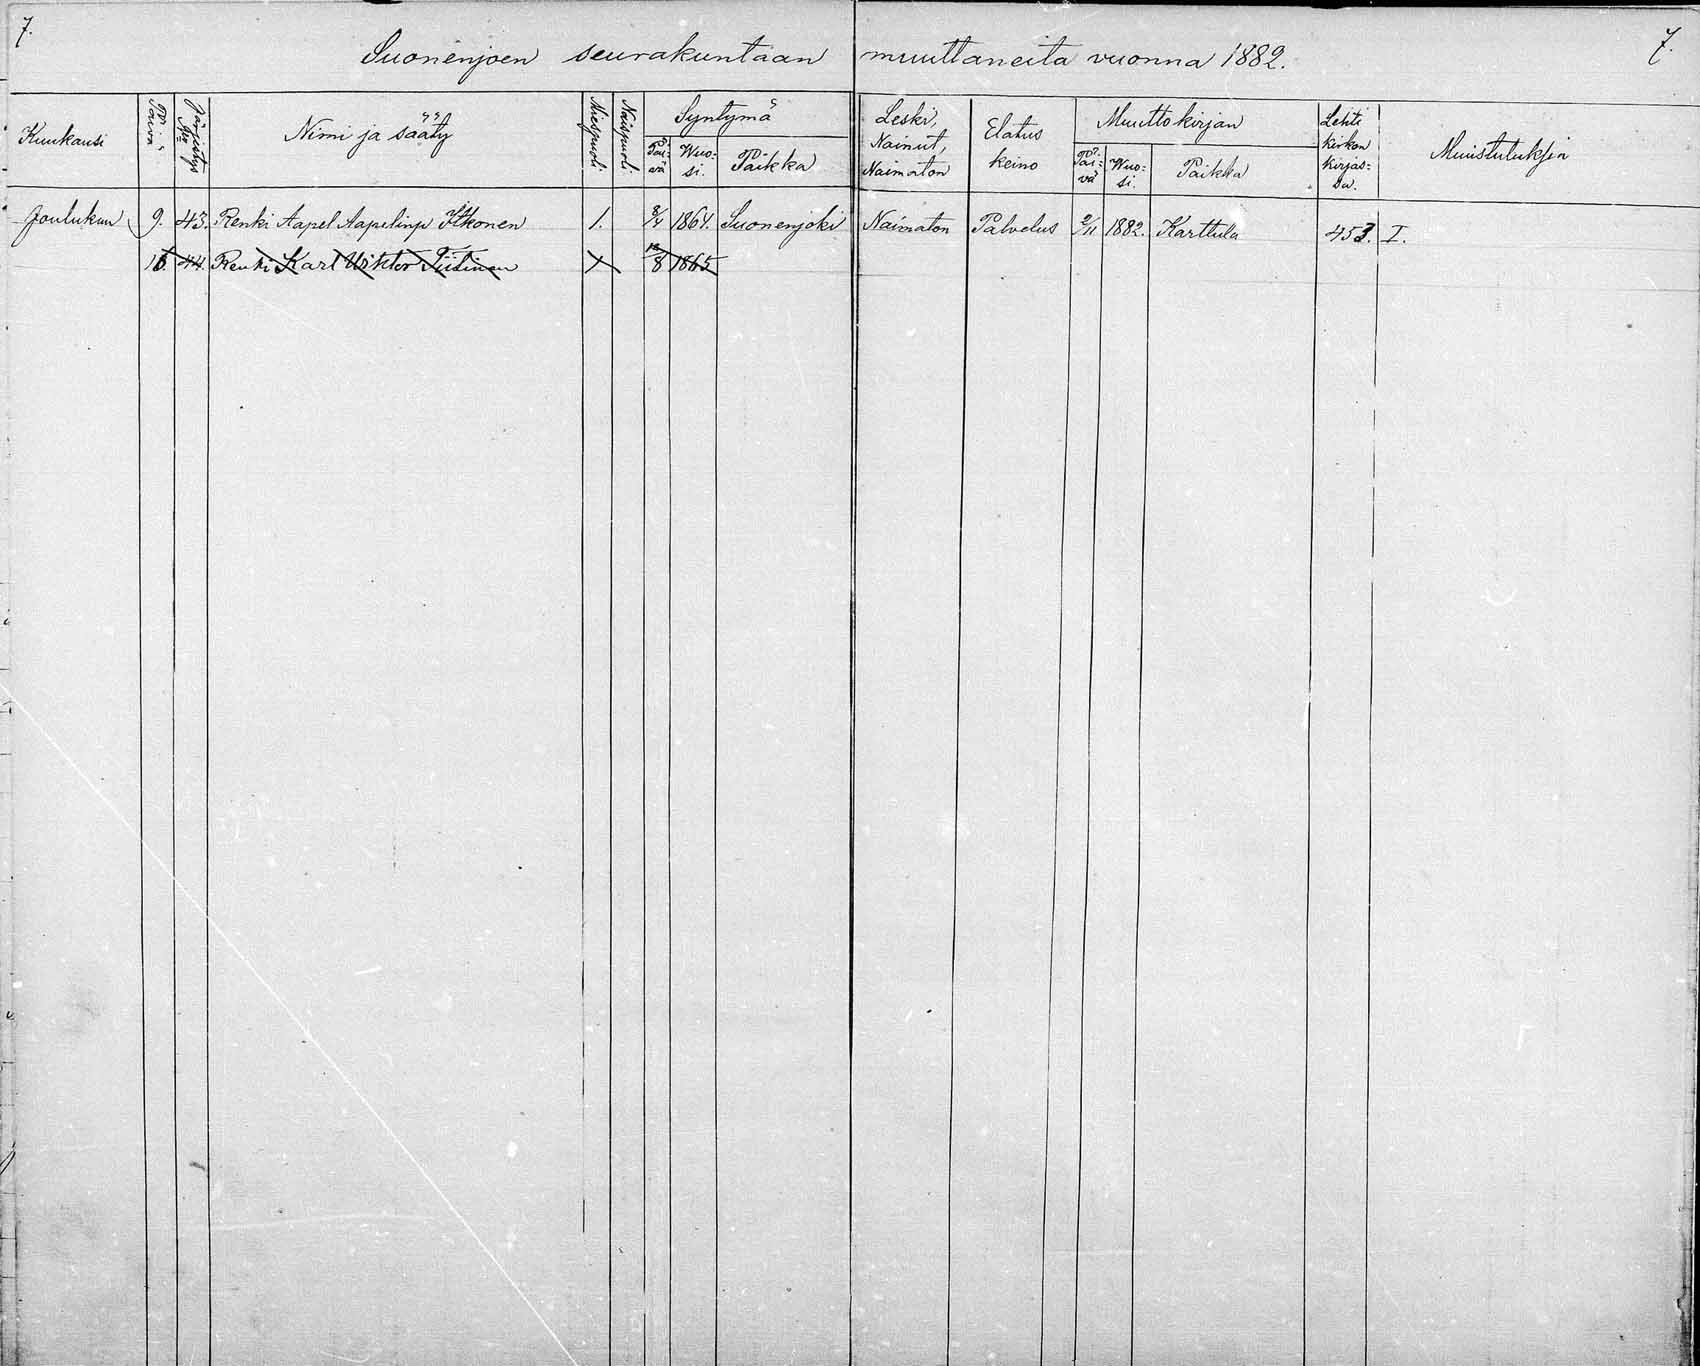 7.
7.
Suonenjoen seurakuntaan muuttaneita vuonna 1882.
Kuukausi
Päivä
Järjestys Nro
Nimi ja sääty
Miespuoli
Naispuoli
Syntymä
Päi-
vä
Wuo-
si.
Paikka
Leski,
Nainut,
Naimaton
Elatus
keino
Muuttokirjan
Päi-
vä
Wuo-
si.
Paikka
Lehti
kirkon
kirjas-
sa.
Muistutuksia
Joulukuu 9. 43. Renki Aapel Aapelinp Itkonen 1. 8/4 1864. Suonenjoki Naimaton Palvelus 2/11 1882. Karttula 453. I.
16. 44. Renki Karl Wiktor Tiitinen 1865